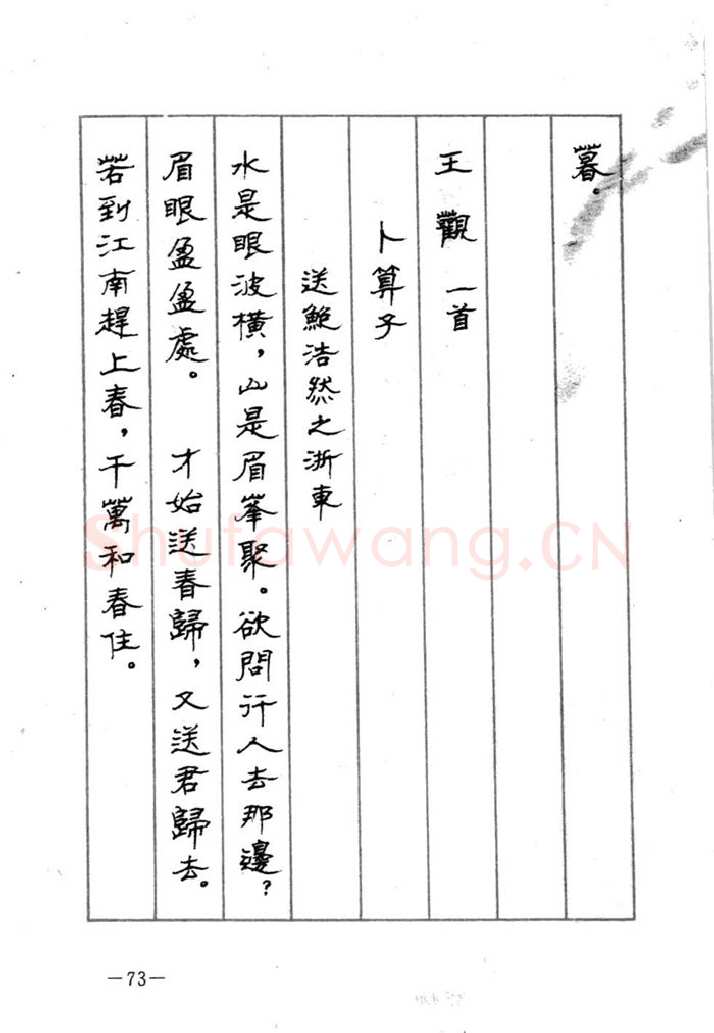 暮．
王觀 一首
卜算子
送鮑浩然之浙東
水是眼波橫，山是眉峯聚。欲問行人去那邊？
眉眼盈盈處。 才始送春歸，又送君歸去。
若到江南趕上春，千萬和春住。
Shufawang.CN
—73—